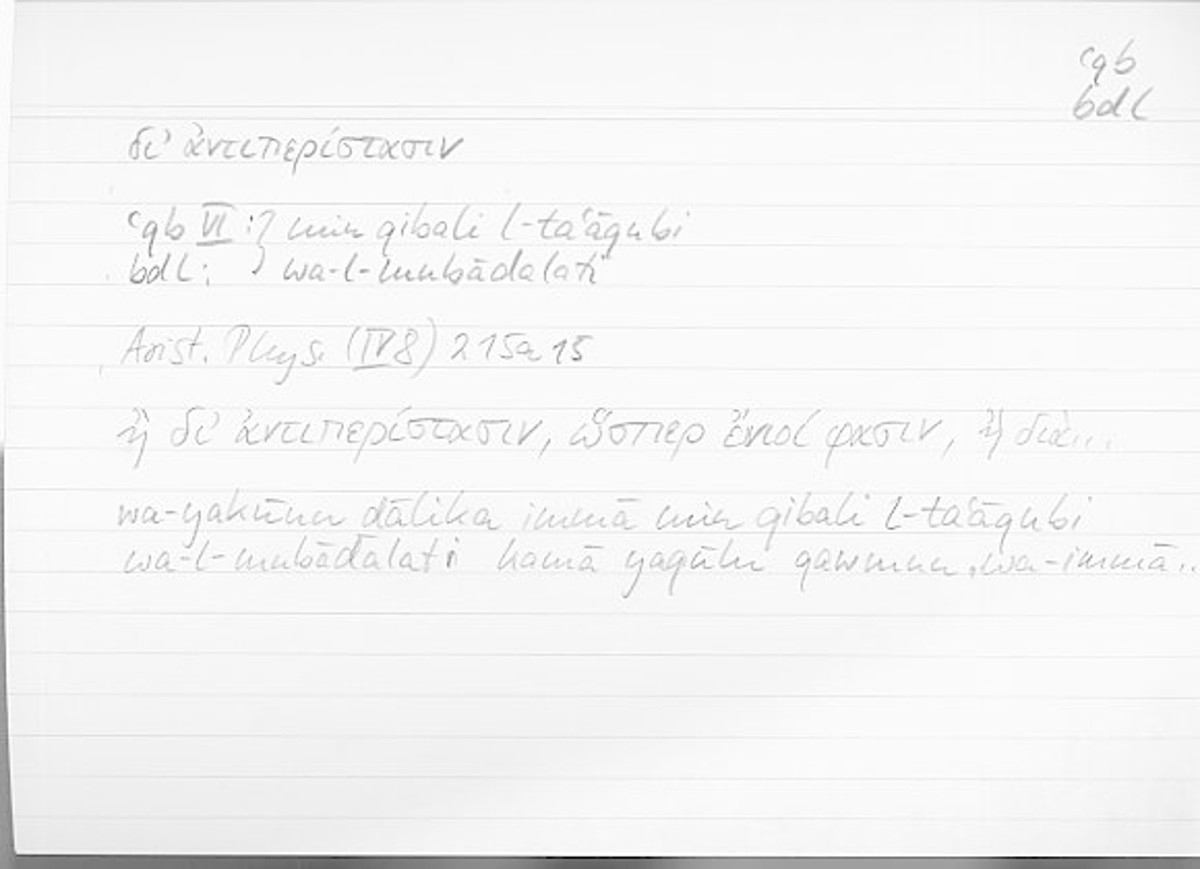 ʿqb
bdl
δι' ἀντιπερίστασιν
ʿqb VI : } min qibali l-taʿāqubi
bdl : } wa-l-mubādalati
Arist. Phys. (IV 8) 215a15
ἢ δι' ἀντιπερίστασιν, ὥσπερ ἔνιοί φασιν, ἢ διὰ...
wa-yakūnu ḏālika immā min qibali l-taʿāqubi
wa-l-mubādalati kamā yaqūlu qawmun, wa-immā..